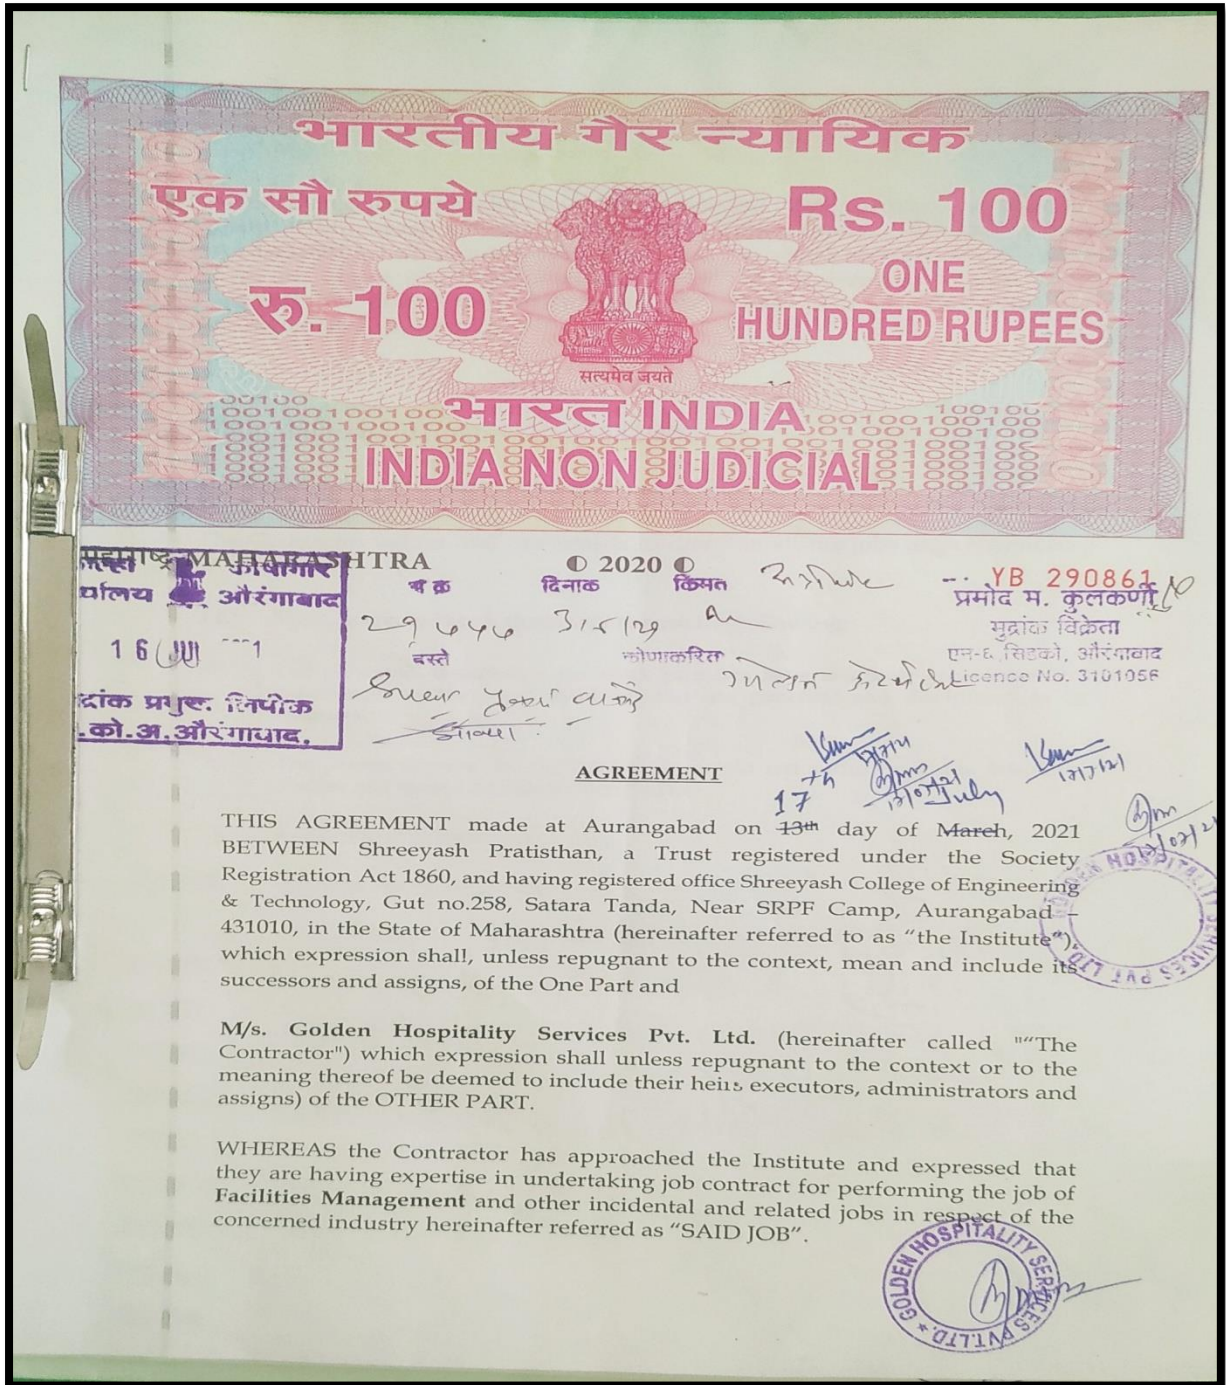 भारतीय गैर न्यायिक
एक सौ रुपये
Rs. 100
रु. 100
ONE
HUNDRED RUPEES
सत्यमेव जयते
भारत INDIA
INDIA NON JUDICIAL
महाराष्ट्र MAHARASHTRA
2020
YB 290861
कोषागार
औरंगाबाद
दिनांक
किंमत
प्रमोद म. कुलकर्णी
मुद्रांक विक्रेता
एन-६ सिडको, औरंगाबाद
Licence No. 3101056
16
लिपीक
को.अ.औरंगाबाद.
AGREEMENT
17th July
THIS AGREEMENT made at Aurangabad on 13th day of March, 2021
BETWEEN Shreeyash Pratisthan, a Trust registered under the Society
Registration Act 1860, and having registered office Shreeyash College of Engineering
& Technology, Gut no.258, Satara Tanda, Near SRPF Camp, Aurangabad –
431010, in the State of Maharashtra (hereinafter referred to as “the Institute”),
which expression shall, unless repugnant to the context, mean and include its
successors and assigns, of the One Part and
M/s. Golden Hospitality Services Pvt. Ltd. (hereinafter called "“The
Contractor") which expression shall unless repugnant to the context or to the
meaning thereof be deemed to include their heirs executors, administrators and
assigns) of the OTHER PART.
WHEREAS the Contractor has approached the Institute and expressed that
they are having expertise in undertaking job contract for performing the job of
Facilities Management and other incidental and related jobs in respect of the
concerned industry hereinafter referred as “SAID JOB”.
GOLDEN HOSPITALITY SERVICES PVT LTD
GOLDEN HOSPITALITY SERVICES PVT.LTD.